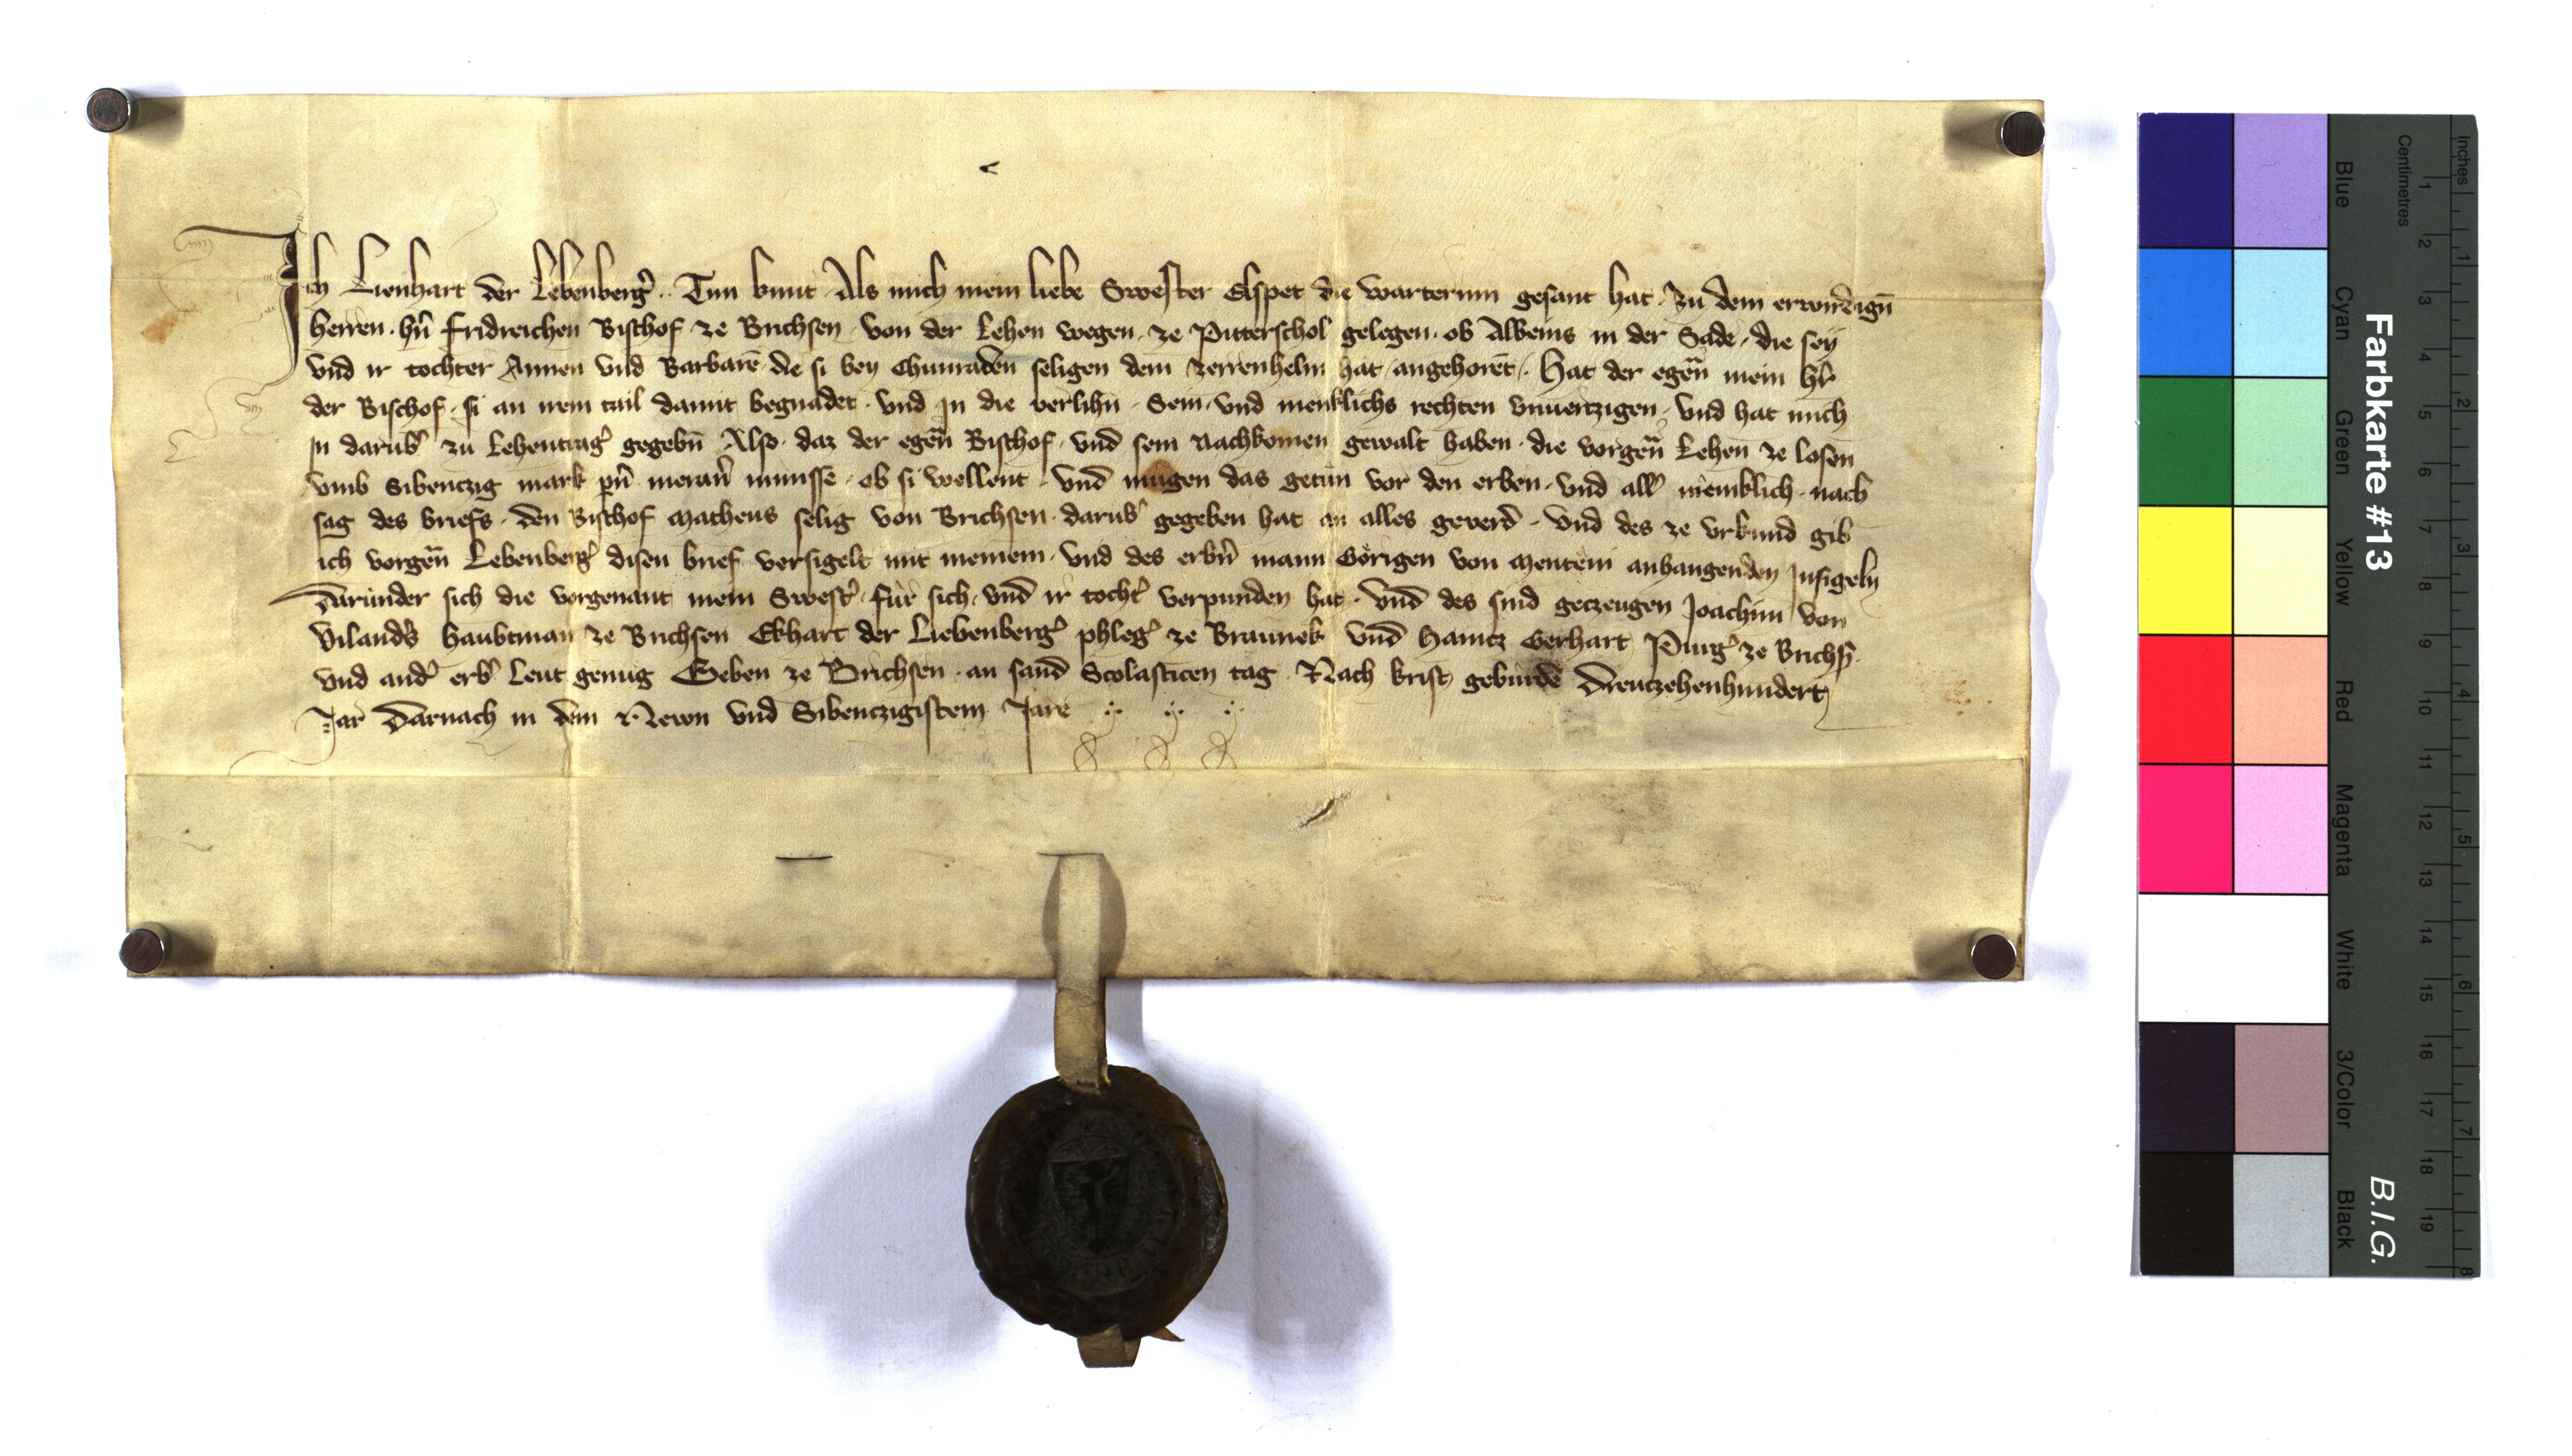 Ich Lienhart der Lebenberg᾽ · Tun kunt · Als mich mein liebe Swester Elspet die warterinn gesant hat · zu dem erwirdign̄
herren · hn̄ Fridreichen Bischof · ze Brichsen · von der Lehen wegen · ze Pitterschol gelegen · ob Albeins in der Sade · die sey
vnd ir tochter Annen vnd Barbarē · die si bey Chunraden seligen dem Zerrenhelm hat · angehorēt · Hat der egen̄ mein hr̄
der Bischof · si an irem tail damit begnadet · vnd in die verlihn̄ · Sein · vnd menklichs rechten vnuertzigen · vnd hat mich
in darub᾽ zu Lehentrag᾽ gegebn̄ Also · daz der egen̄ Bischof · vnd sein nachkomen gewalt haben · die vorgen̄ Lehen ze losen
vmb Sibentzig mark pn̄ meran᾽ munsse · ob si wellent · vnd mugen das getun vor den erben · vnd all᾽ meniklich · nach
sag des briefs · den Bischof Matheus selig von Brichsen · darub᾽ gegeben hat an alles geuerd · vnd des ze vrkund gib
ich vorgen̄ Lebenberg᾽ disen brief versigelt mit meinem · vnd des erbn̄ mann Görigen von Mentein anhangenden Insigeln
Darunder sich die vorgenant mein Swest᾽ · für sich · vnd ir tocht᾽ verpunden hat · vnd des sind getzeugen Joachim von
Vilanders haubtman ze Brichsen Ekhart der Liebenberg᾽ phleg᾽ ze Braunek vnd Haintz Gerhart Purg᾽ ze Brichs̄ ·
vnd and᾽ erb᾽ leut genug Geben ze Brichsen · an sand Scolasticen tag · Nach krists gebürde Dreutzehenhundert
Jar Darnach in dem Newn vnd Sibentzigistem Jare
Farbkarte #13
B.I.G.
Inches
Centimetres
1 2 3 4 5 6 7 8 9 10 11 12 13 14 15 16 17 18 19
1 2 3 4 5 6 7 8
Blue
Cyan
Green
Yellow
Red
Magenta
White
3/Color
Black